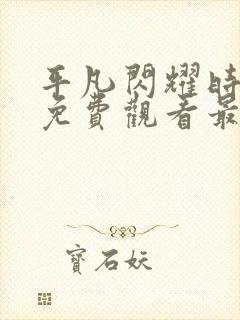 平凡閃耀時
免費觀看最
寶石妖